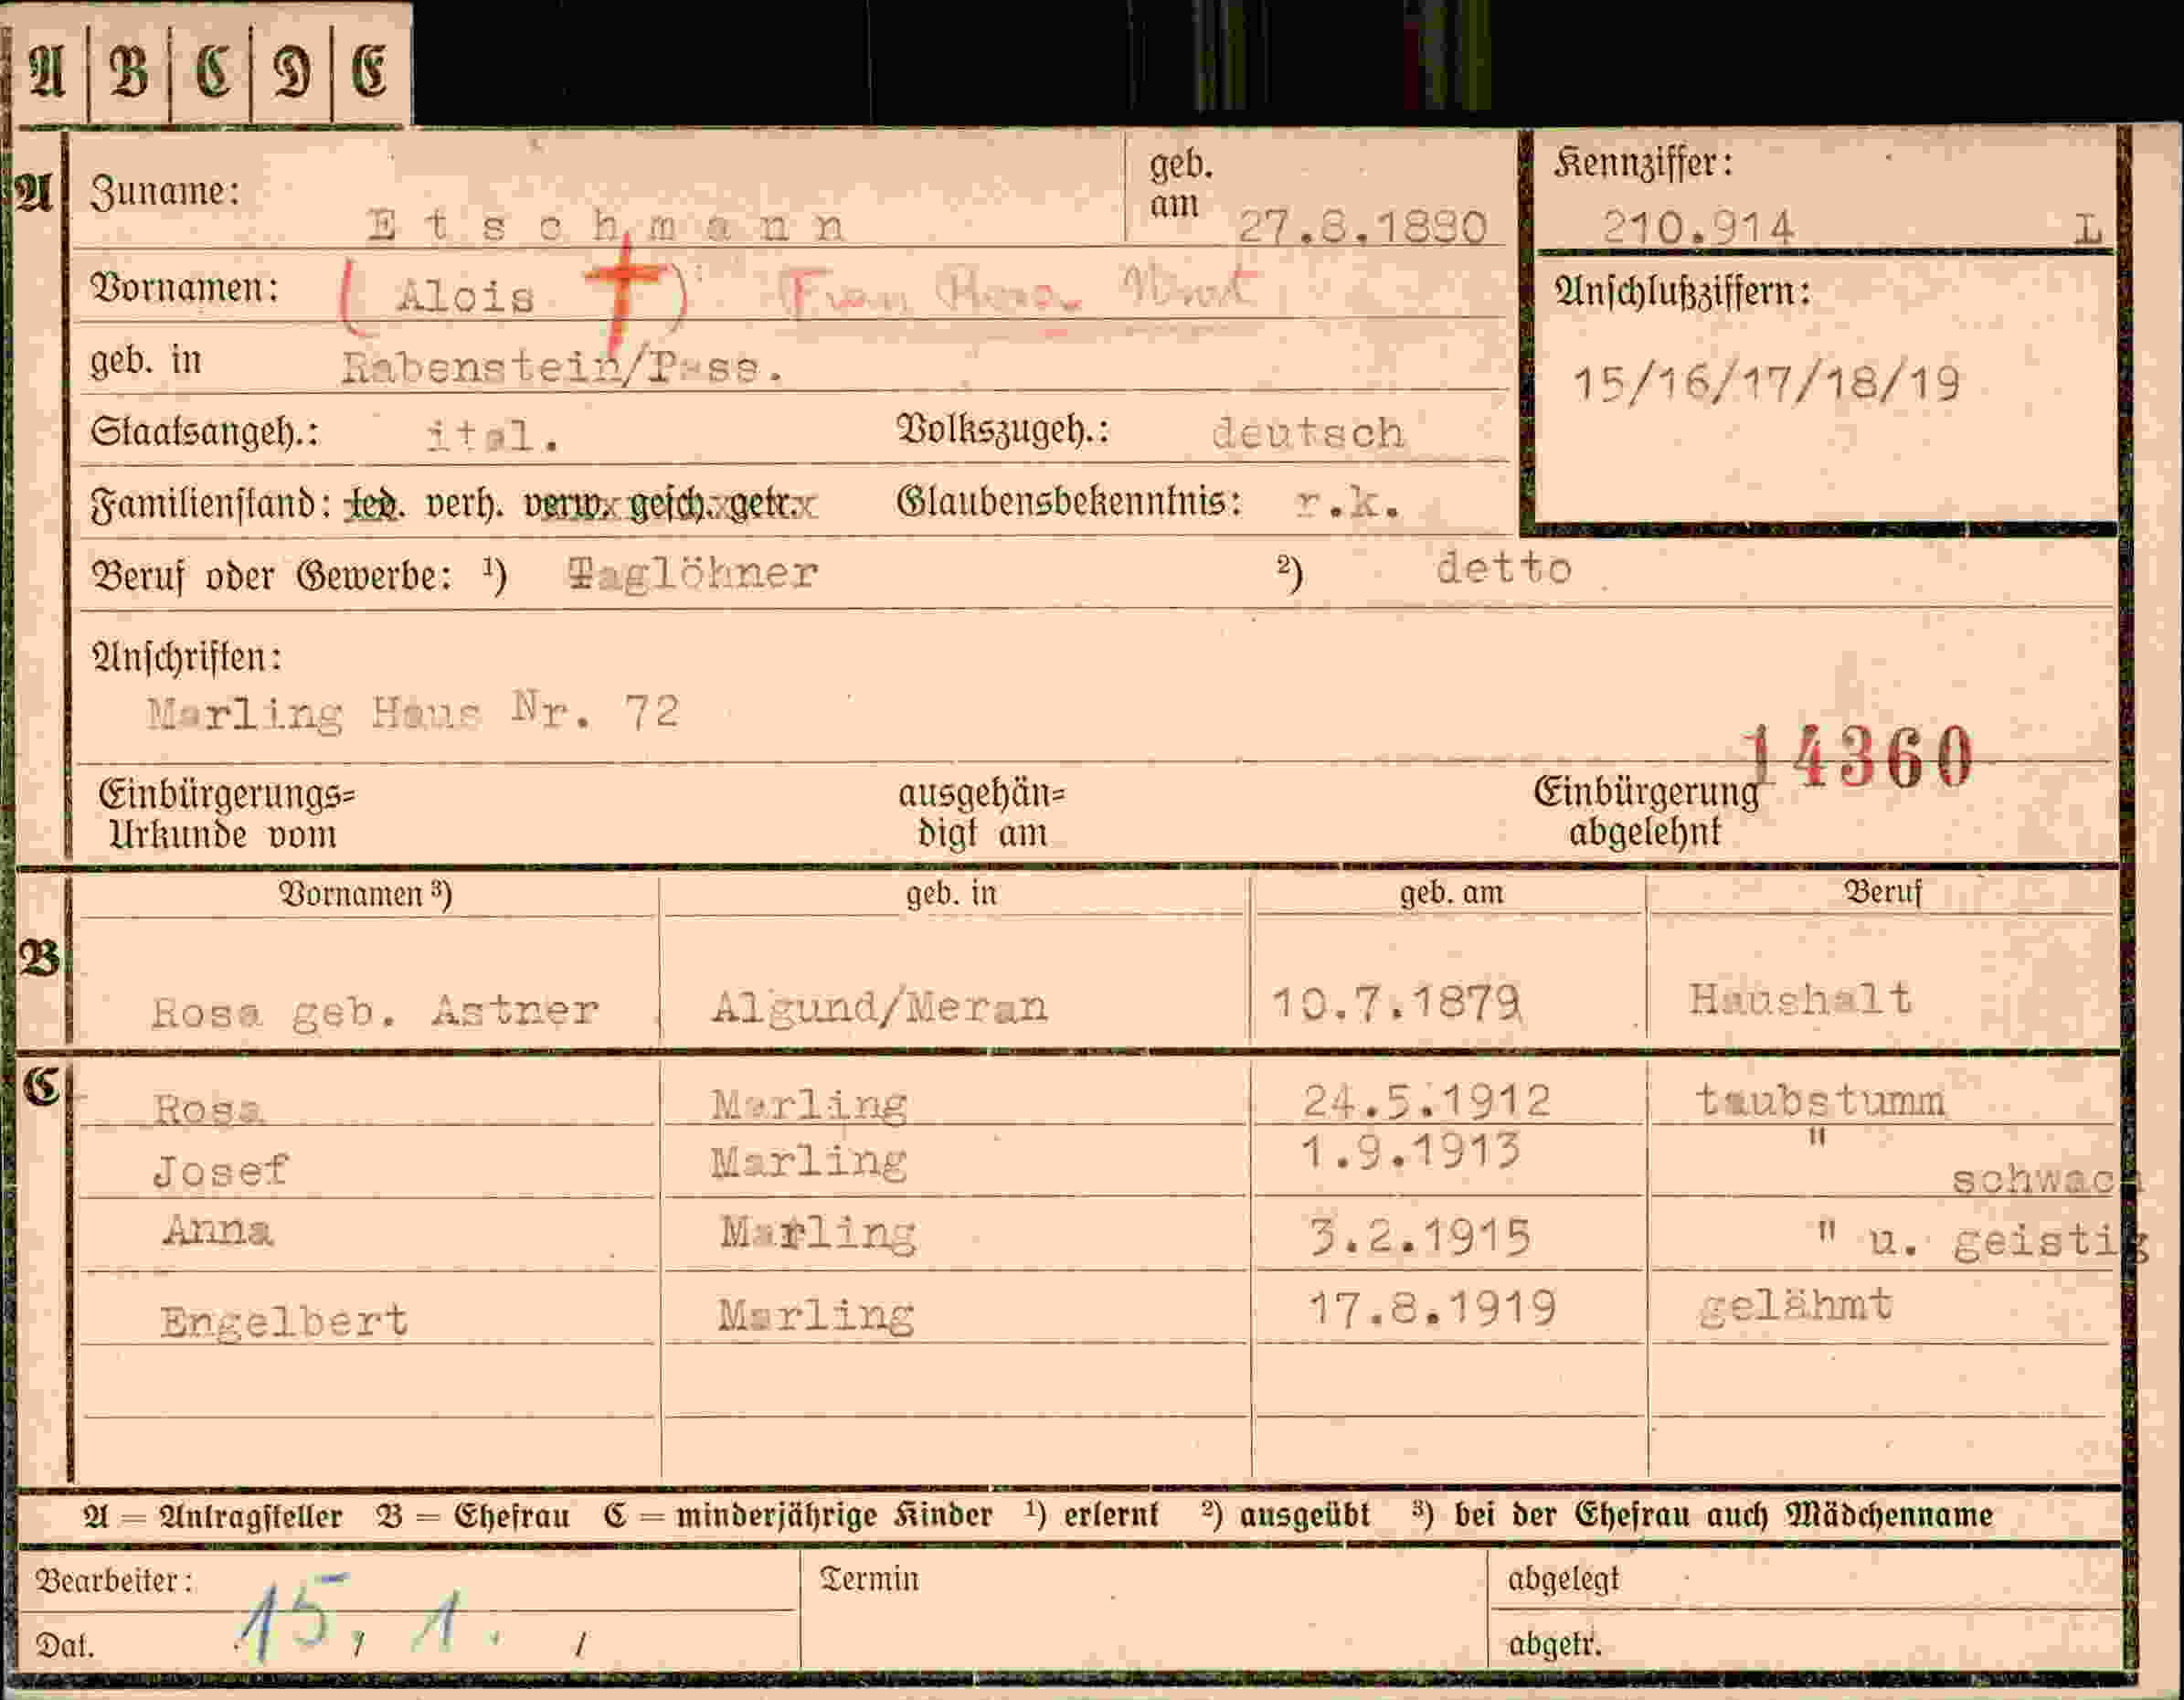 A B C D E
A Zuname: Etschmann geb. am 27.8.1880 Kennziffer: 210.914 L
Vornamen: (Alois †) Frau
geb. in Rabenstein/Pass. Anschlußziffern:
15/16/17/18/19
Staatsangeh.: ital. Volkszugeh.: deutsch
Familienstand: led. verh. verw. gesch. getr. Glaubensbekenntnis: r.k.
Beruf oder Gewerbe: ¹) Taglöhner ²) detto
Anschriften:
Marling Haus Nr. 72
14360
Einbürgerungs= ausgehän= Einbürgerung
Urkunde vom digt am abgelehnt
Vornamen ³) geb. in geb. am Beruf
B
Rosa geb. Astner Algund/Meran 10.7.1879 Haushalt
C Rosa Marling 24.5.1912 taubstumm
Josef Marling 1.9.1913 "
schwach
Anna Marling 3.2.1915 " u. geistig
Engelbert Marling 17.8.1919 gelähmt
A = Antragsteller B = Ehefrau C = minderjährige Kinder ¹) erlernt ²) ausgeübt ³) bei der Ehefrau auch Mädchenname
Bearbeiter: Termin abgelegt
Dat. 15, 1. / abgetr.